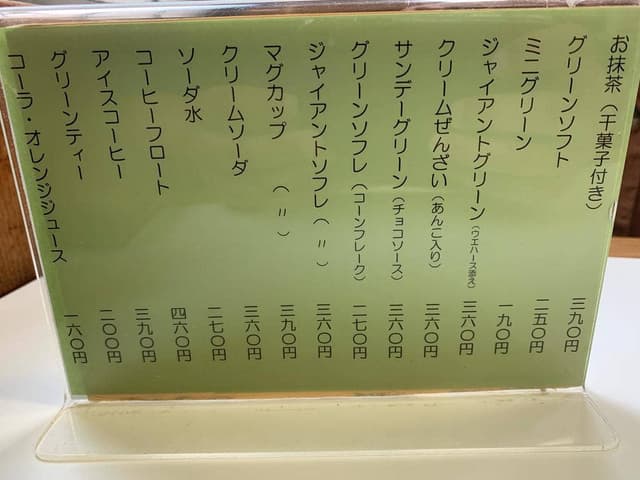 お抹茶（干菓子付き） 三九〇円
グリーンソフト 二五〇円
ミニグリーン 一九〇円
ジャイアントグリーン（ウエハース添え） 三六〇円
クリームぜんざい（あんこ入り） 三六〇円
サンデーグリーン（チョコソース） 三六〇円
グリーンソフレ（コーンフレーク） 二七〇円
ジャイアントソフレ（　〃　） 三六〇円
マグカップ　（　〃　） 三九〇円
クリームソーダ 三六〇円
ソーダ水 二七〇円
コーヒーフロート 四六〇円
アイスコーヒー 三九〇円
グリーンティー 二〇〇円
コーラ・オレンジジュース 一六〇円